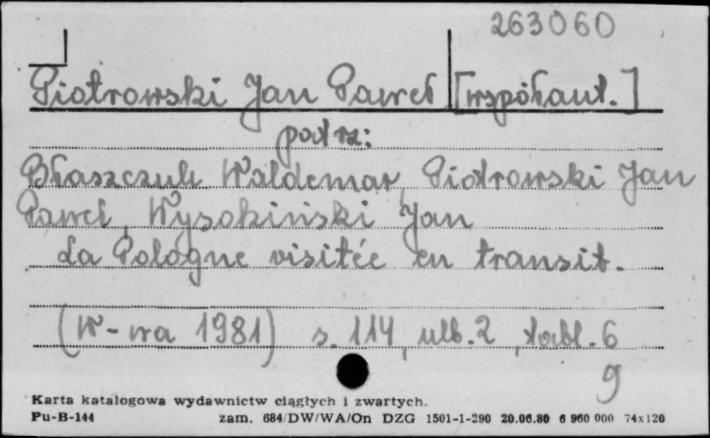 263060
Piotrowski Jan Paweł [współaut.]
patrz:
Błaszczuk Waldemar, Piotrowski Jan
Paweł, Wysokiński Jan
La Pologne visitée en transit.
(W-wa 1981) s. 114, ulb. 2, tabl. 6
9
Karta katalogowa wydawnictw ciągłych i zwartych.
Pu-B-144 zam. 684/DW/WA/On DZG 1501-1-290 20.06.80 6 960 000 74x120